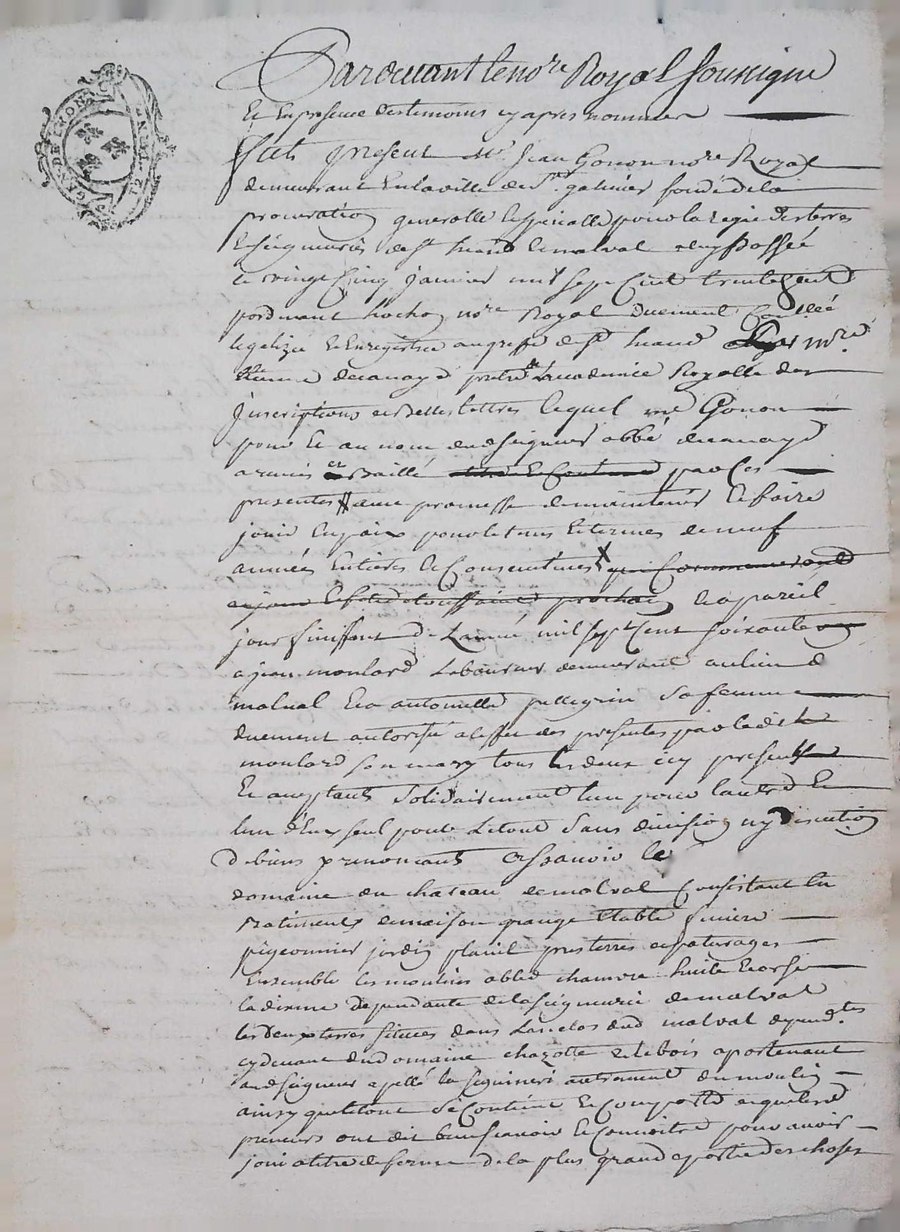 GEN. DE LYON
Pardevant le no.re Royal soussigné
Et En presence des temoins cy apres nommés
fut present M.r Jean Gonon no.re Royal
demeurant En la ville de S.t galmier fondé de la
procuration generalle Et specialle pour la regie des terres
Et seigneuries de S.t heand Et malval a luy passée
le vingt Cinq Janvier mil sept Cent trente
pardevant hochon no.re Royal duement Conllée
legalizée Et Enregistrée au greffe de S.t heand par m.re
Etienne decanaye pretre de Lacademie Royalle des
Inscriptions et Belles lettres lequel m.e Gonon
pour Et au nom dud Seigneur abbé decanaye
a remis et Baillé par Ces
presentes avec promesse de maintenir Et faire
jouir En paix pour le tems Et termes de neuf
années Entieres Et Consecutives qui Commenceront
a jour Et fete de toussaint prochain Et a pareil
jour finissant de L'année mil sept Cent soixante
a jean moulard Laboureur demeurant au lieu de
malval Et a antoinette pellegrin sa femme
duement autorisée a Leffet des presentes par led
moulard son mary tous les deux icy presents
Et acceptants Solidairement lun pour lautre Et
lun d'Eux seul pour Le tout Sans division ny discution
de biens y renoncant Assavoir le
domaine du chateau de malval Consistant En
Batiments de maison grange Etable feniere
pigeonnier jardin prés terres et paturages
Ensemble les moulins a bled chanvre huile Et
la dixme dependante de la seigneurie de malval
les deux terres situées dans Lenclos dud malval depend.tes
cydevant dud domaine chazotte et le bois apartenant
aud seigneur apellé la autrement du moulin
ainsy que le tout Se Contient Et Comporte et que lesd
preneurs ont dit bien scavoir Et Connoitre pour avoir
joui a titre de ferme de la plus grande partie des choses